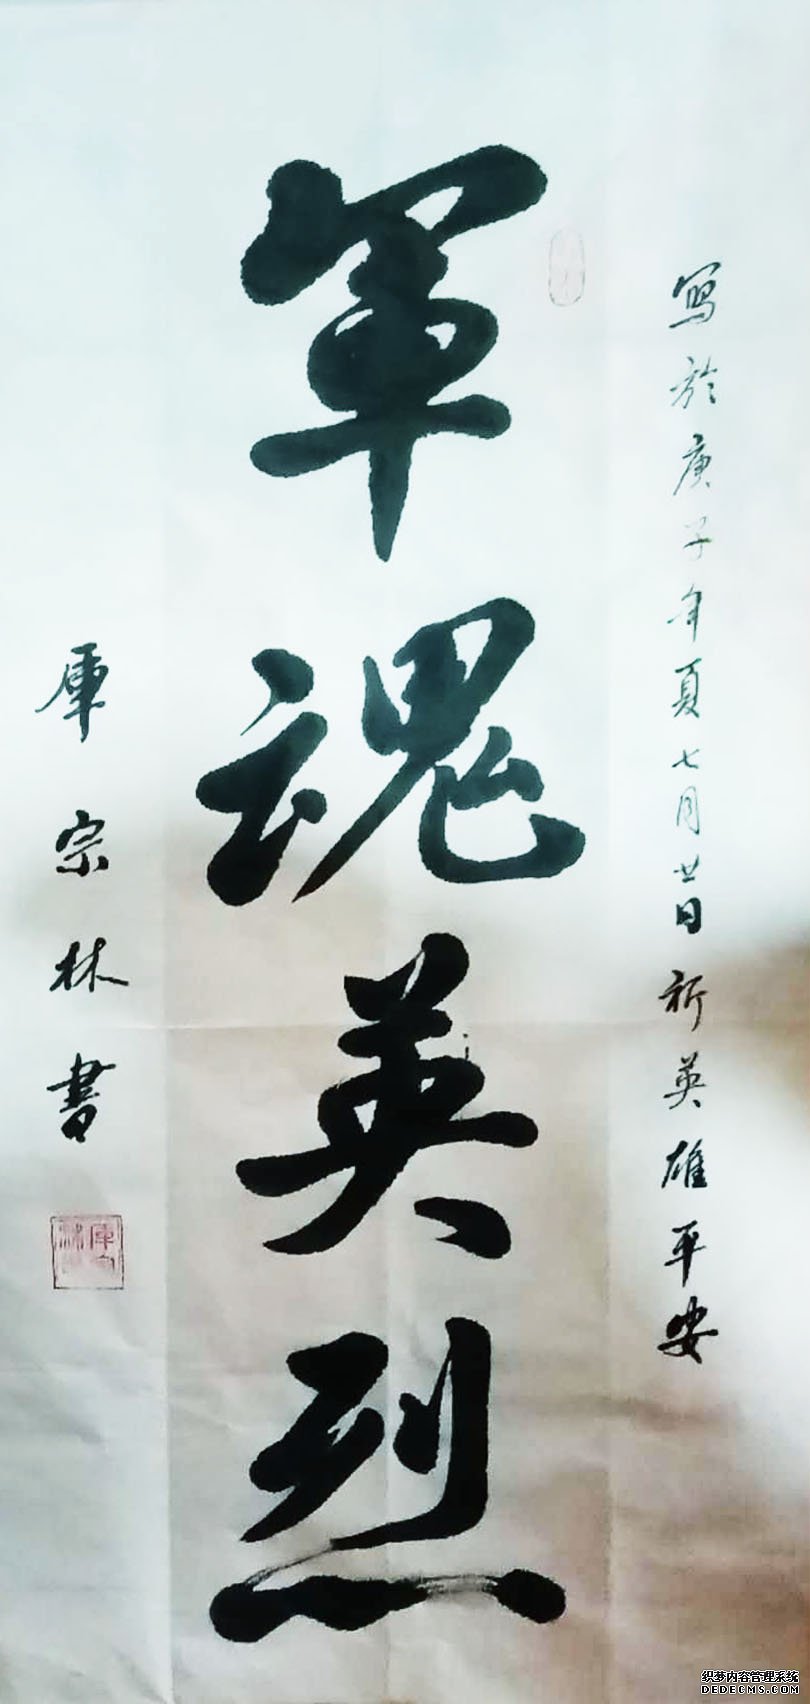 寫於庚子年夏七月廿日祈英雄平安
軍魂英烈
庫宗林書
织梦内容管理系统
DEDECMS.COM